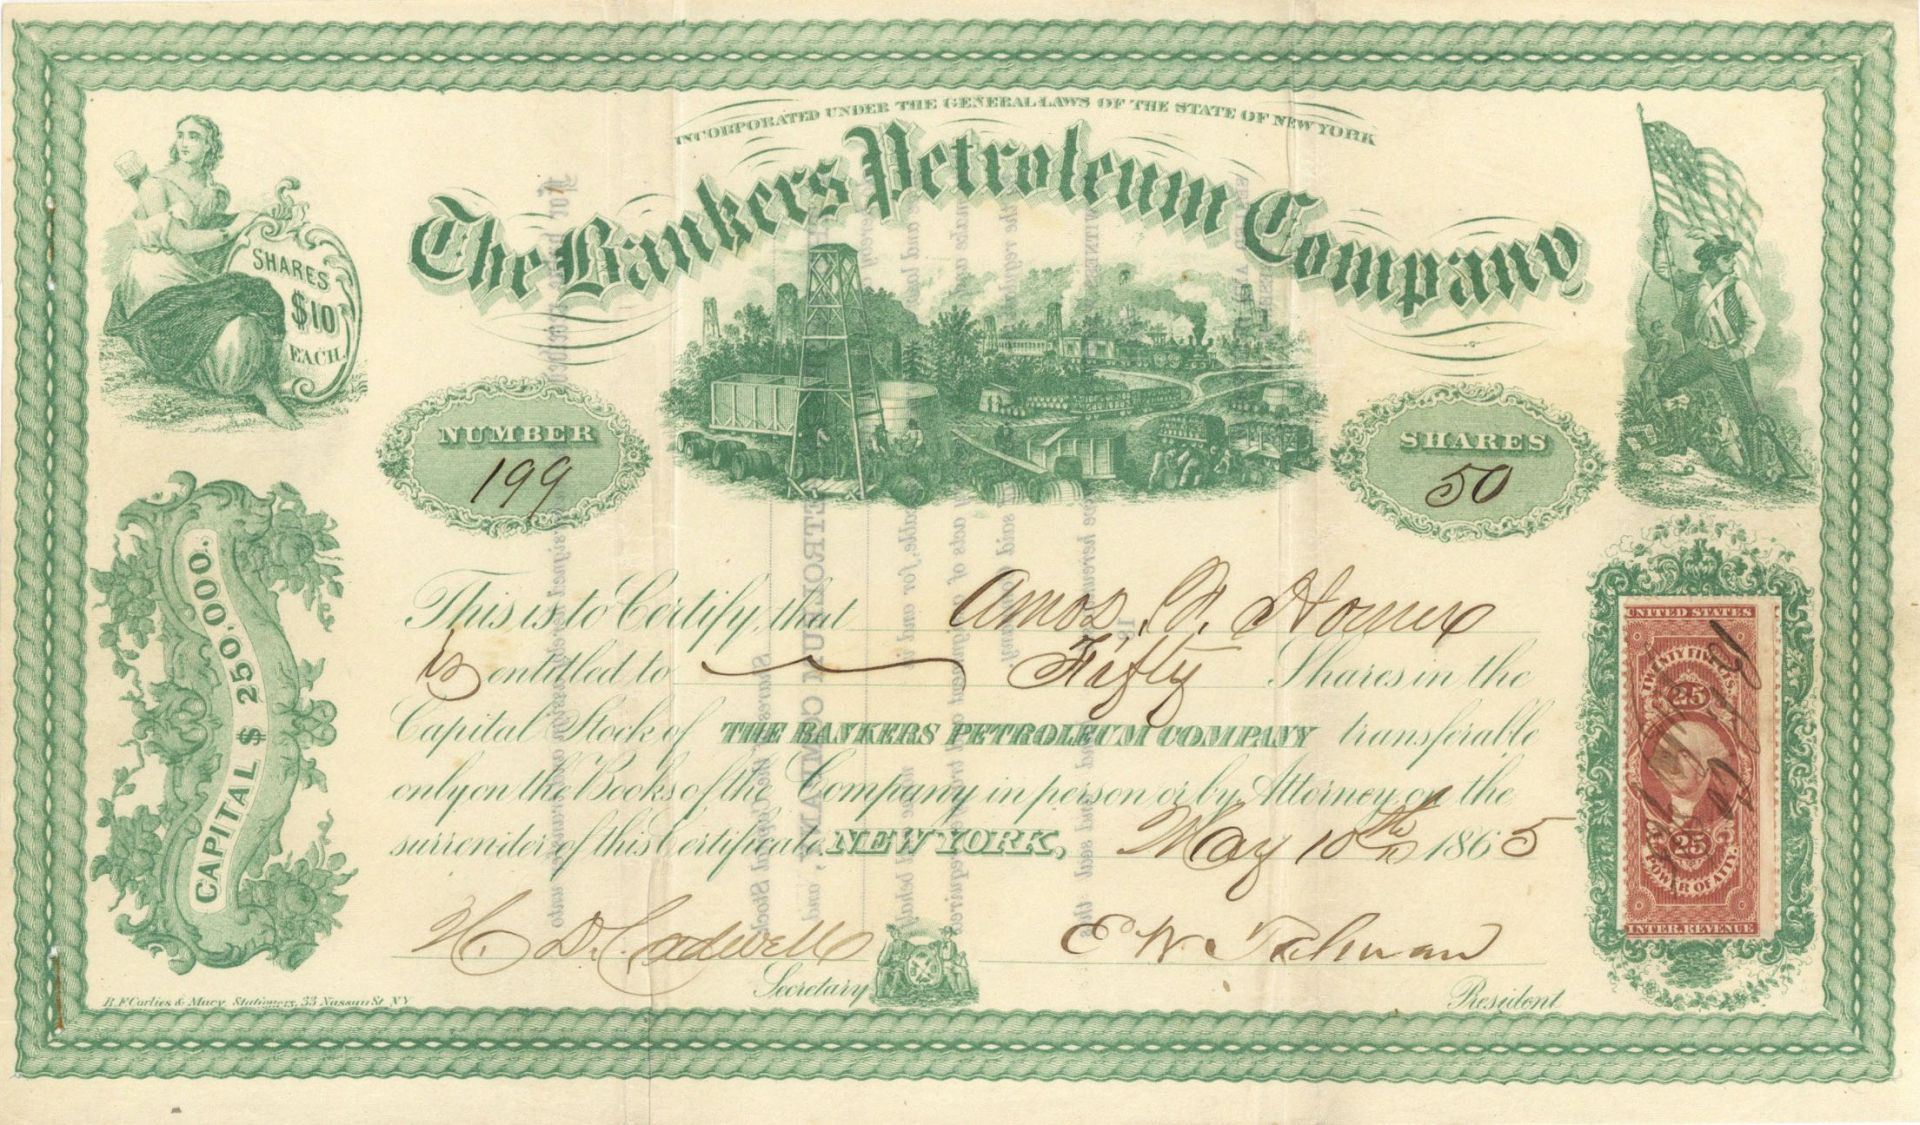 INCORPORATED UNDER THE GENERAL LAWS OF THE STATE OF NEW YORK
The Bankers Petroleum Company
SHARES
$10
EACH.
NUMBER
199
SHARES
50
CAPITAL $ 250.000.
This is to Certify, that Amos
is entitled to Fifty Shares in the
Capital Stock of THE BANKERS PETROLEUM COMPANY transferable
only on the Books of the Company in person or by Attorney on the
surrender of this Certificate. NEW YORK, May 10th 1865
H. D. Cadwell
Secretary
E W
President
B. F. Corlies & Macy, Stationers, 33 Nassau St. N.Y.
UNITED STATES
TWENTY FIVE CTS.
25
25
POWER OF ATTY.
INTER. REVENUE